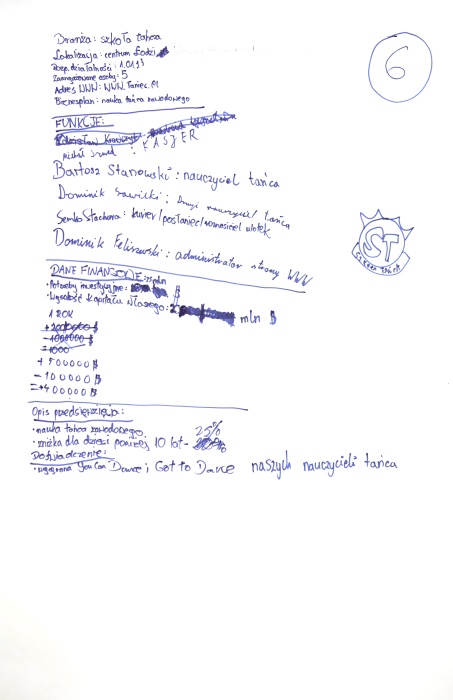 Branża: szkoła tańca
Lokalizacja: centrum Łodzi
Rozp. działalności: 1.01.13
Zaangażowane osoby: 5
Adres WWW: WWW.Taniec.Pl
Biznesplan: nauka tańca zawodowego
6
FUNKCJE:
: KASJER
Bartosz Stanowski: nauczyciel tańca
Dominik Sawicki: Drugi nauczyciel tańca
Stachara: kurier/posłaniec/ulotek
Dominik Feliszewski: administrator strony WWW
ST
szkoła tańca
DANE FINANSOWE:
• Potrzeby inwestycyjne: $
• Wysokość kapitału własnego: 2 mln $
1 ROK
+500000 $
-100000 $
=+400000 $
Opis przedsięwzięcia:
• nauka tańca zawodowego
• zniżka dla dzieci poniżej 10 lat - 25%
Doświadczenie:
• wygrana You Can Dance i Got to Dance naszych nauczycieli tańca